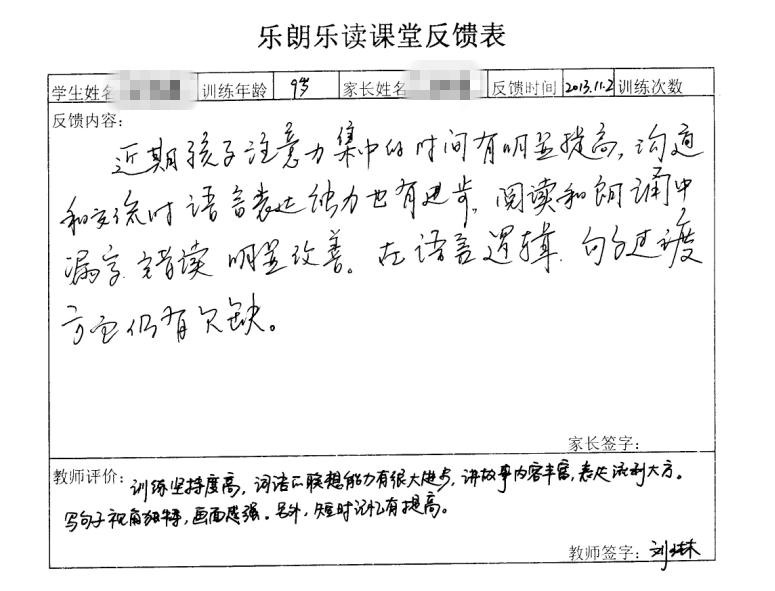 乐朗乐读课堂反馈表
学生姓名 训练年龄 9岁 家长姓名 反馈时间 2013.11.2 训练次数
反馈内容:
近期孩子注意力集中的时间有明显提高,沟通
和交流时语言表达能力也有进步,阅读和朗诵中
漏字、错读明显改善。在语言逻辑、句子过渡
方面仍有欠缺。
家长签字:
教师评价: 训练坚持度高,词语的联想能力有很大进步,讲故事内容丰富,表达流利大方。
写句子视角独特,画面感强。另外,短时记忆有提高。
教师签字: 刘琳